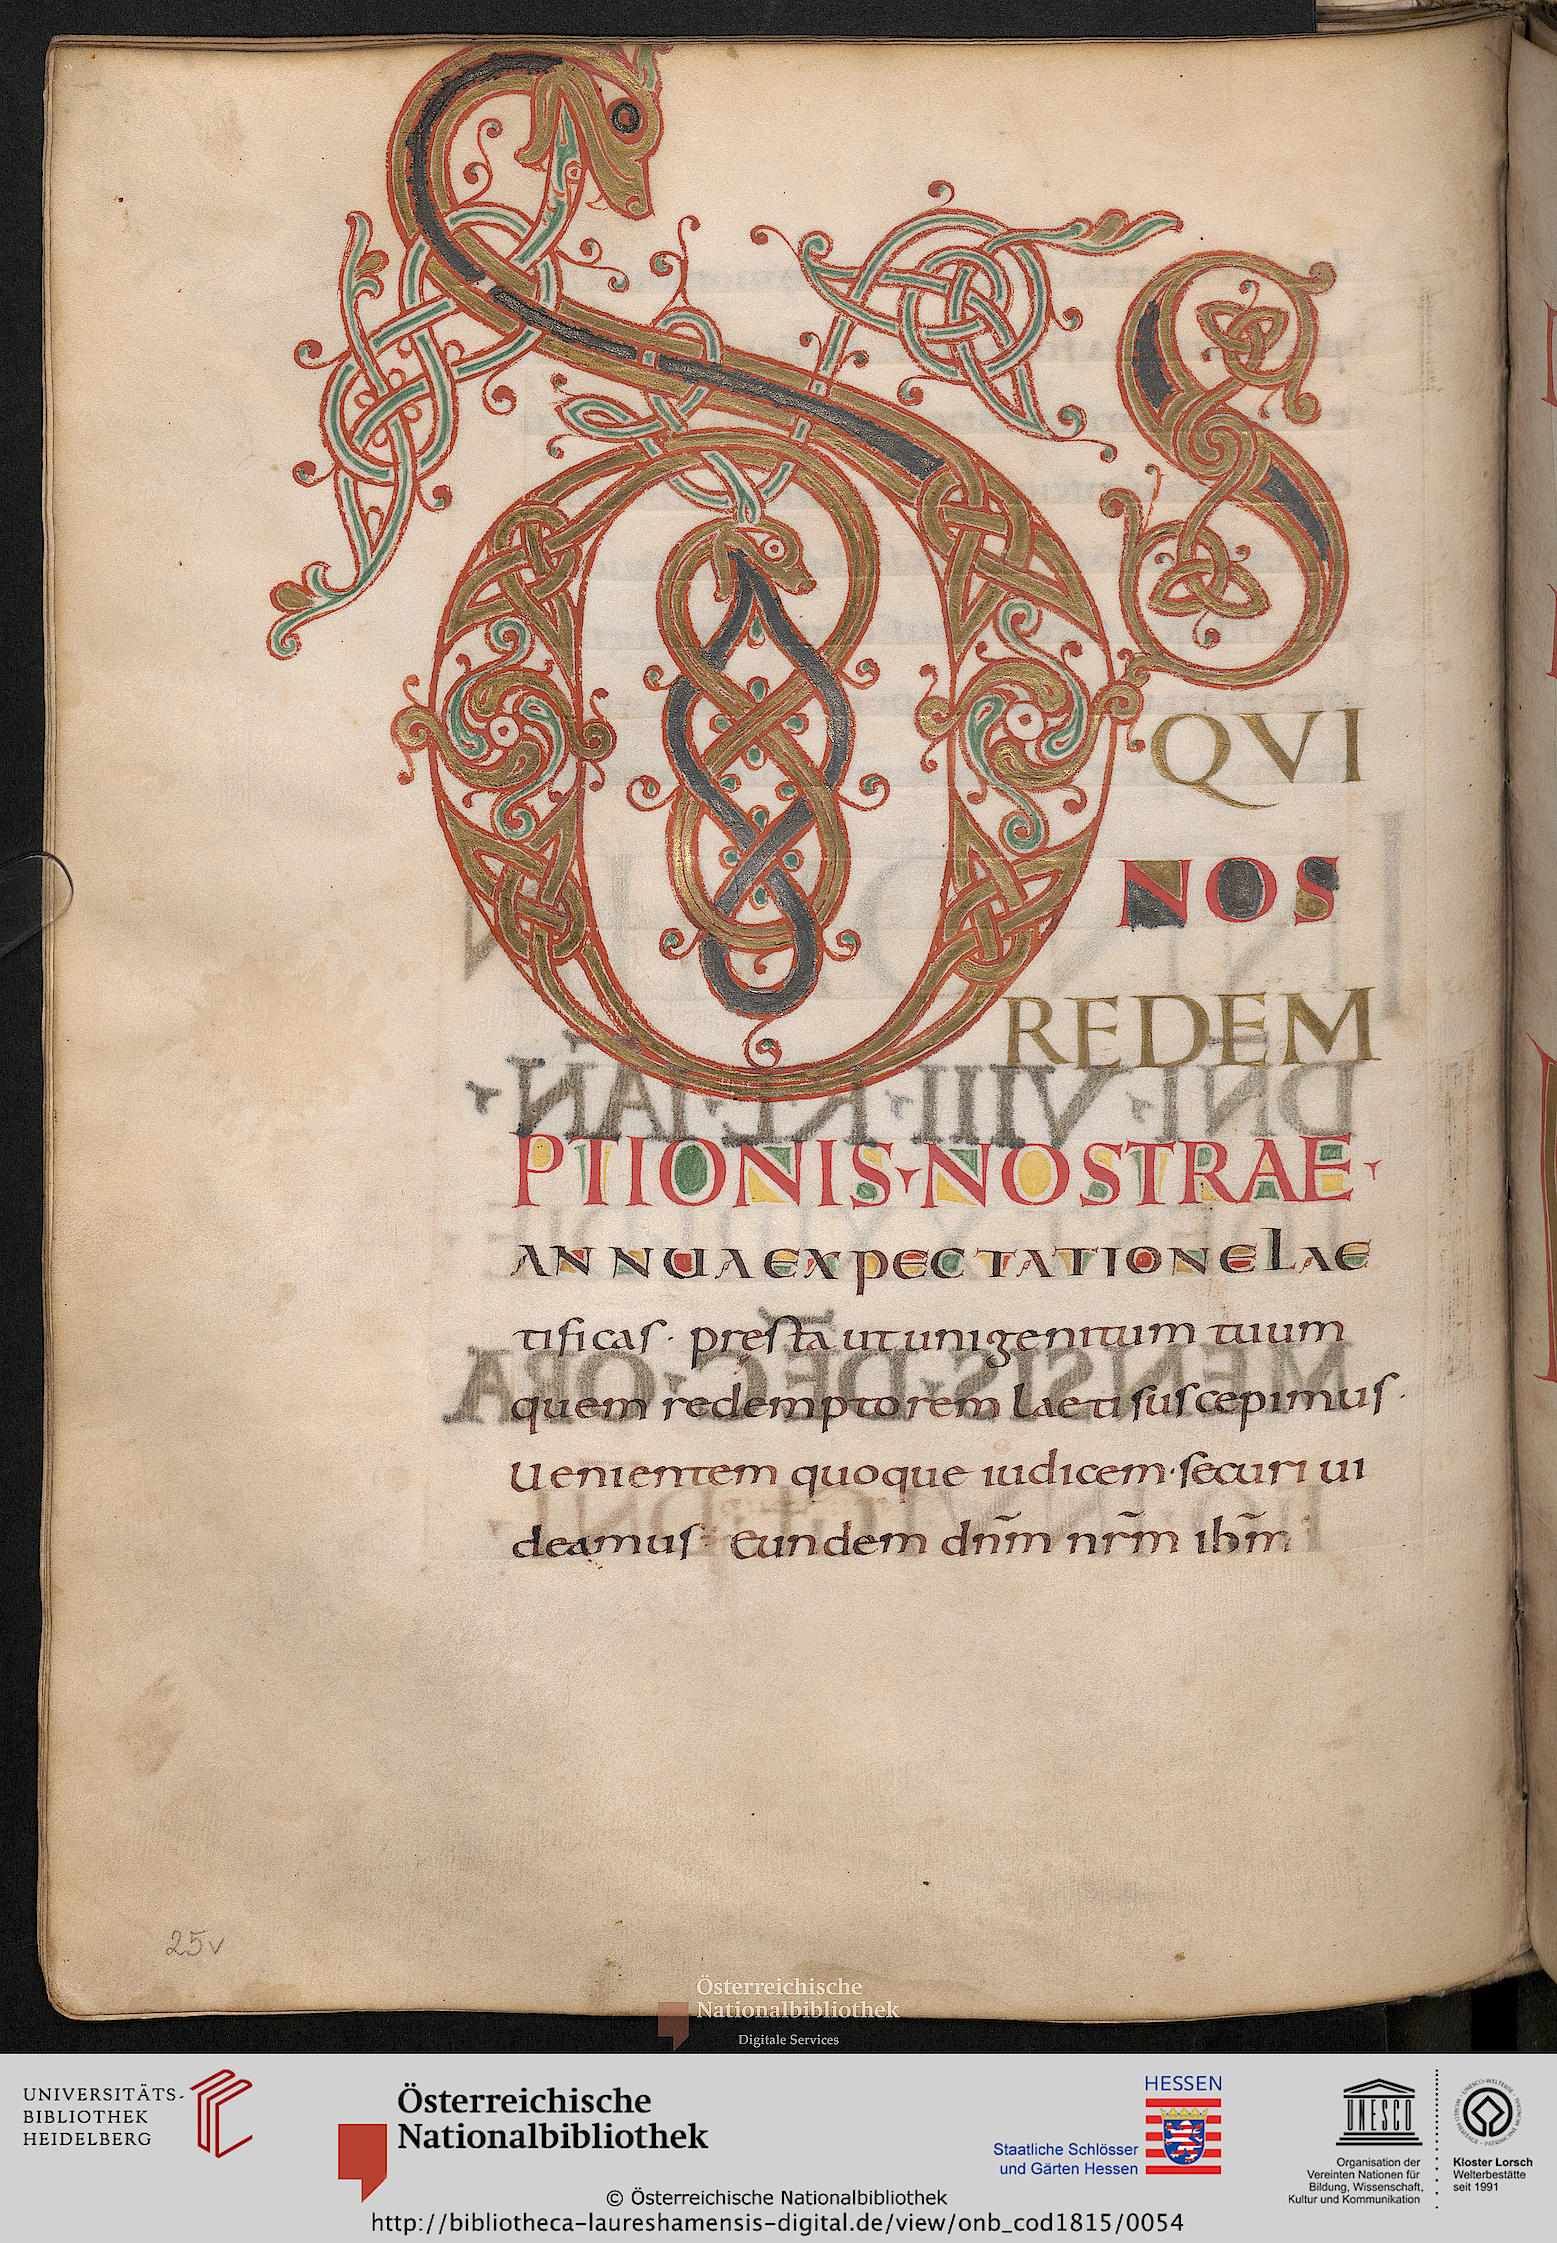 DS
QVI
NOS
REDEM
PTIONIS·NOSTRAE·
ANNUA EXPECTATIONE LAE
tificas· pręsta ut unigenitum tuum
quem redemptorem laeti suscepimus·
Uenientem quoque iudicem· securi ui
deamus· Eundem dn̄m nr̄m ih̄m
25v
Österreichische
Nationalbibliothek
Digitale Services
UNIVERSITÄTS-
BIBLIOTHEK
HEIDELBERG
Österreichische
Nationalbibliothek
HESSEN
Staatliche Schlösser
und Gärten Hessen
UNESCO
Organisation der
Vereinten Nationen für
Bildung, Wissenschaft,
Kultur und Kommunikation
Kloster Lorsch
Welterbestätte
seit 1991
© Österreichische Nationalbibliothek
http://bibliotheca-laureshamensis-digital.de/view/onb_cod1815/0054